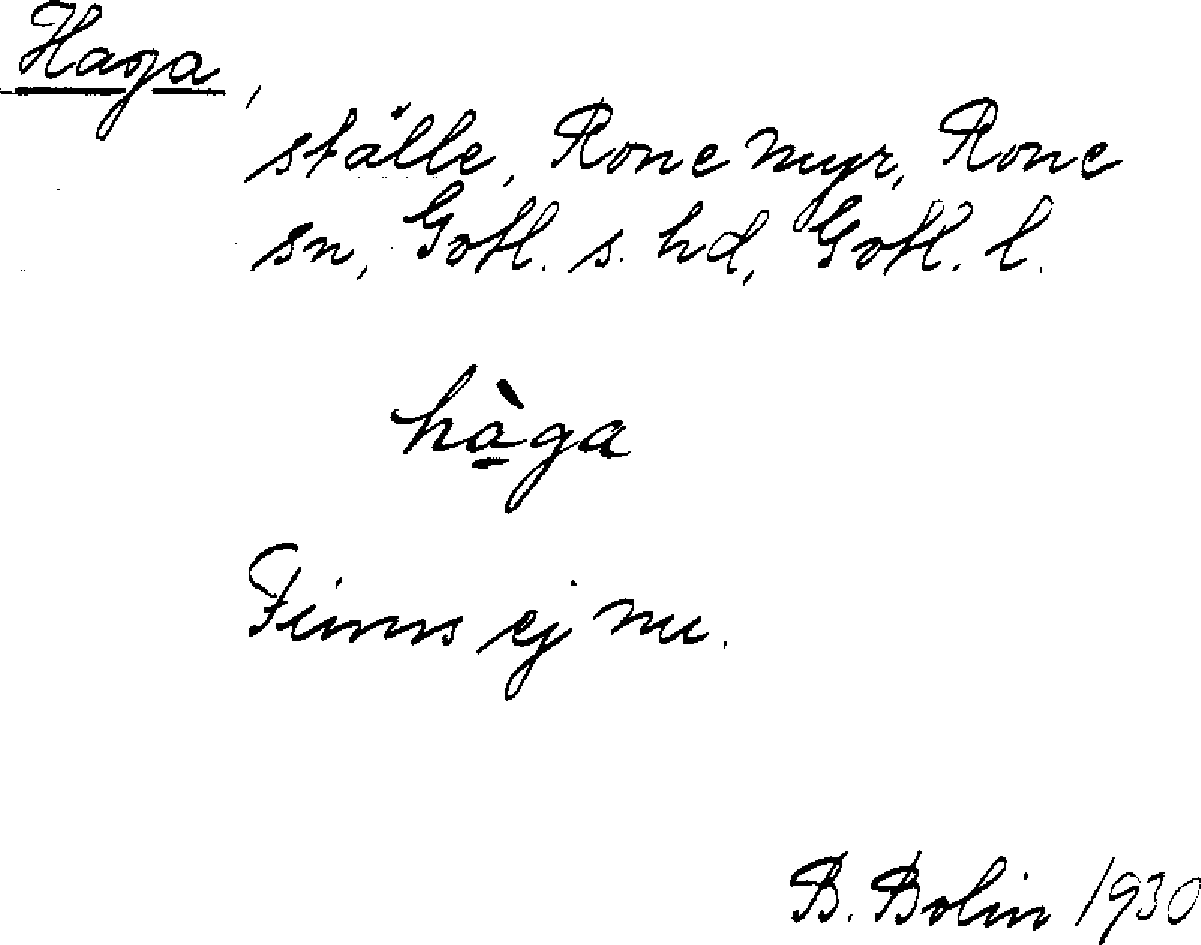 Haga,
ställe, Rone myr, Rone
sn, Gotl. s. hd, Gotl. l.
hà̱ga
Finns ej nu.
B. Bolin 1930